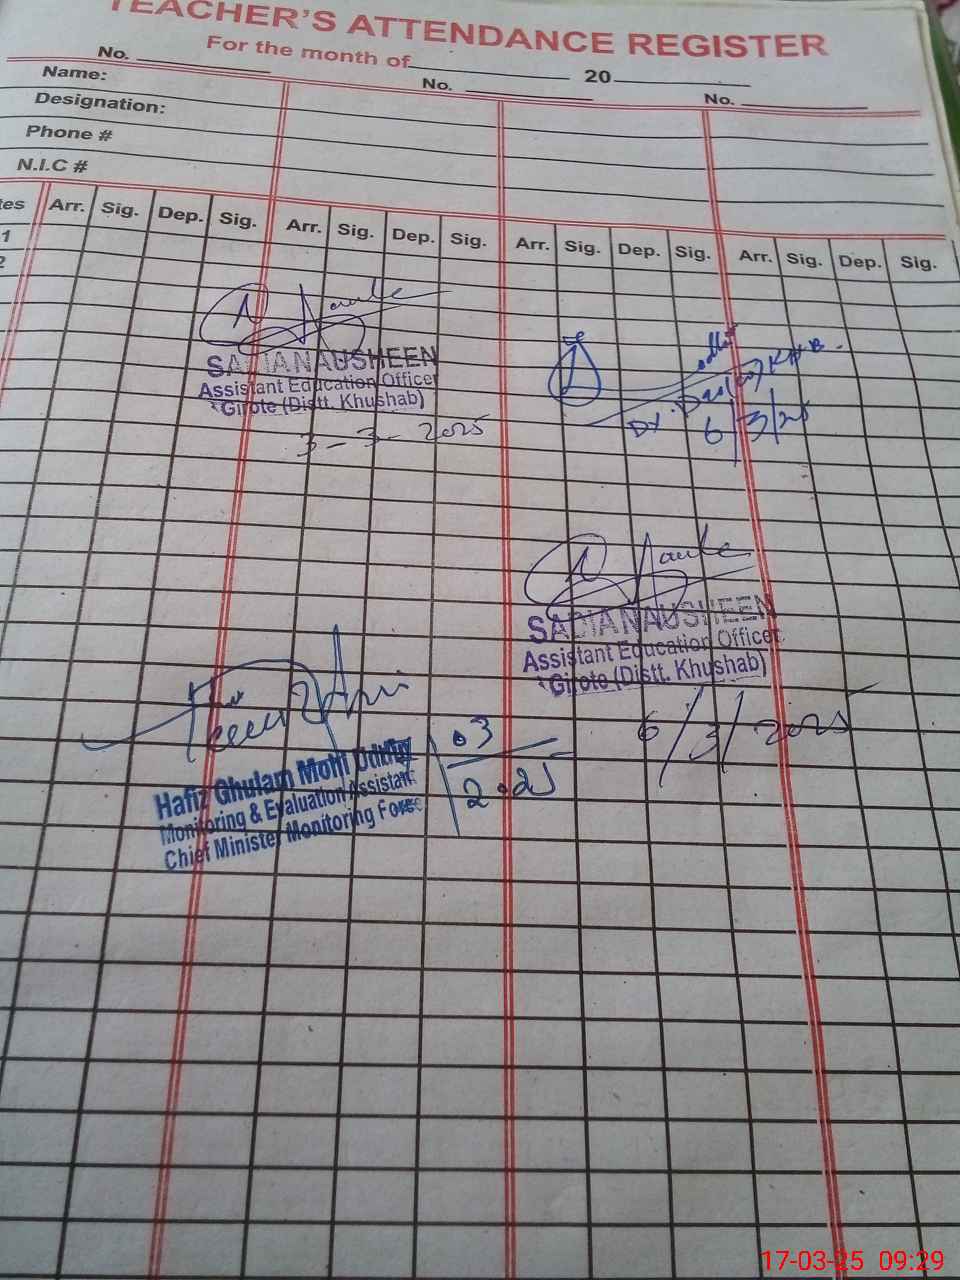 TEACHER'S ATTENDANCE REGISTER
For the month of 20
No. No. No.
Name:
Designation:
Phone #
N.I.C #
tes Arr. Sig. Dep. Sig. Arr. Sig. Dep. Sig. Arr. Sig. Dep. Sig. Arr. Sig. Dep. Sig.
1
2
SADIA NAUSHEEN
Assistant Education Officer
Girote (Distt. Khushab)
3-3-2025
Dy.
6/3/25
SADIA NAUSHEEN
Assistant Education Officer
Girote (Distt. Khushab)
6/3/2025
Hafiz Ghulam Mohi Uddin
Monitoring & Evaluation Assistant
Chief Minister Monitoring Force
03
2025
17-03-25 09:29